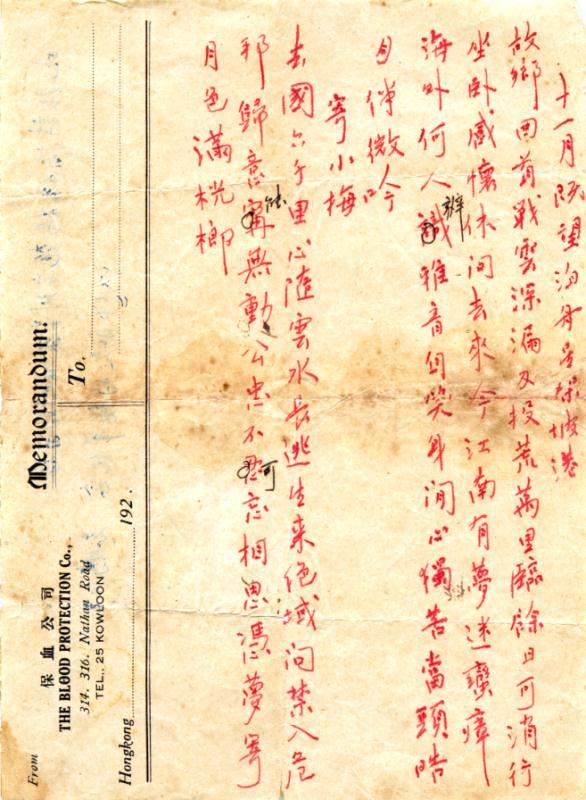 十一月既望泊舟星架坡港
故鄉回首戰雲深漏刃投荒萬里臨餘日可消行
坐卧感懷休問去來今江南有夢迷蠻瘴
海外何人識辨雅音自笑身閒心獨苦當頭皓
月伴微吟
寄小梅
去國六千里心隨雲水長逃生來絕域問禁入危
邦歸意寧能無動公忠不忍可忘相思憑夢寄
月色滿桄榔
Memorandum.
To.
From
保血公司
THE BLOOD PROTECTION Co.,
314. 316. Nathan Road
TEL., 25 KOWLOON
Hongkong 192 .